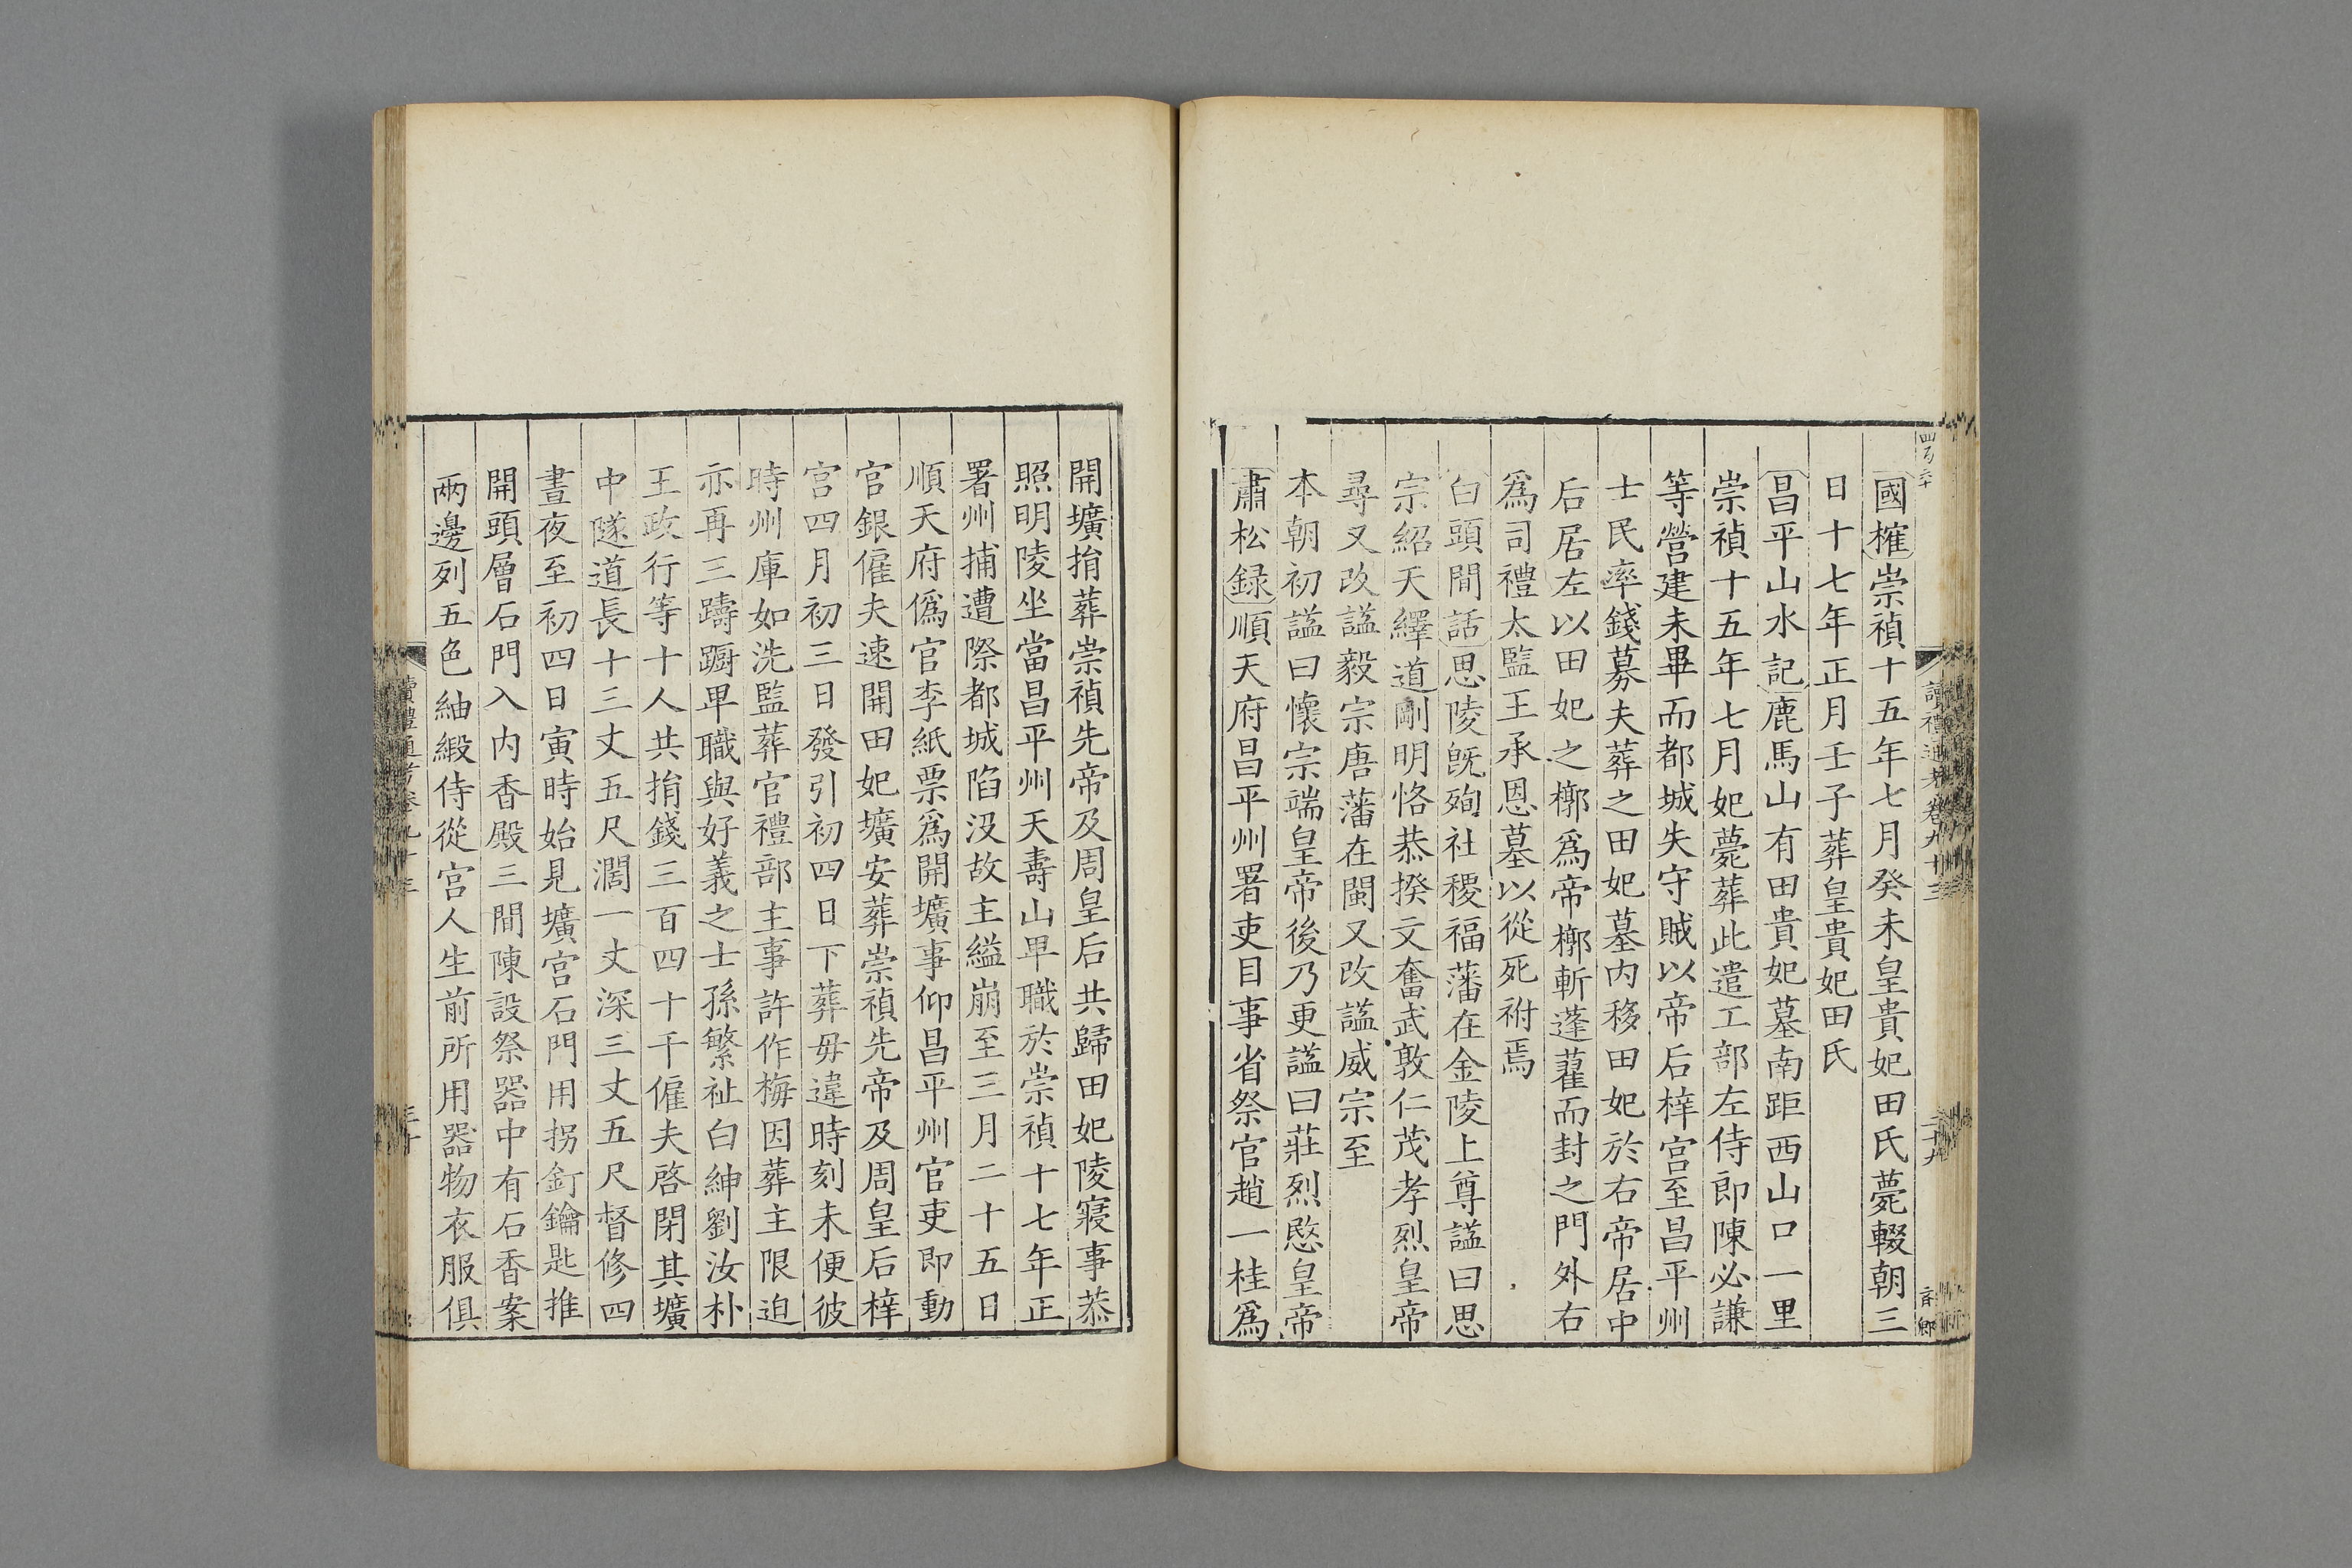 國榷崇禎十五年七月癸未皇貴妃田氏薨輟朝三
日十七年正月壬子葬皇貴妃田氏
昌平山水記鹿馬山有田貴妃墓南距西山口一里
崇禎十五年七月妃薨葬此遣工部左侍郎陳必謙
等營建未畢而都城失守賊以帝后梓宮至昌平州
士民率錢募夫葬之田妃墓內移田妃於右帝居中
后居左以田妃之槨爲帝槨斬蓬藋而封之門外右
爲司禮太監王承恩墓以從死祔焉
白頭閒話思陵旣殉社稷福藩在金陵上尊謚曰思
宗紹天繹道剛明恪恭揆文奮武敦仁茂孝烈皇帝
尋又改謚毅宗唐藩在閩又改謚威宗至
本朝初謚曰懷宗端皇帝後乃更謚曰莊烈愍皇帝
肅松録順天府昌平州署吏目事省祭官趙一桂爲
讀禮通考卷九十三
二十九
開壙捐葬崇禎先帝及周皇后共歸田妃陵寢事恭
照明陵坐當昌平州天壽山卑職於崇禎十七年正
署州捕遭際都城陷沒故主縊崩至三月二十五日
順天府僞官李紙票爲開壙事仰昌平州官吏即動
官銀僱夫速開田妃壙安葬崇禎先帝及周皇后梓
宮四月初三日發引初四日下葬毋違時刻未便彼
時州庫如洗監葬官禮部主事許作梅因葬主限迫
亦再三躊蹰卑職與好義之士孫繁祉白紳劉汝朴
王政行等十人共捐錢三百四十千僱夫啓閉其壙
中隧道長十三丈五尺濶一丈深三丈五尺督修四
晝夜至初四日寅時始見壙宮石門用拐釘鑰匙推
開頭層石門入內香殿三間陳設祭器中有石香案
兩邊列五色紬緞侍從宮人生前所用器物衣服俱
讀禮通考卷九十三
三十